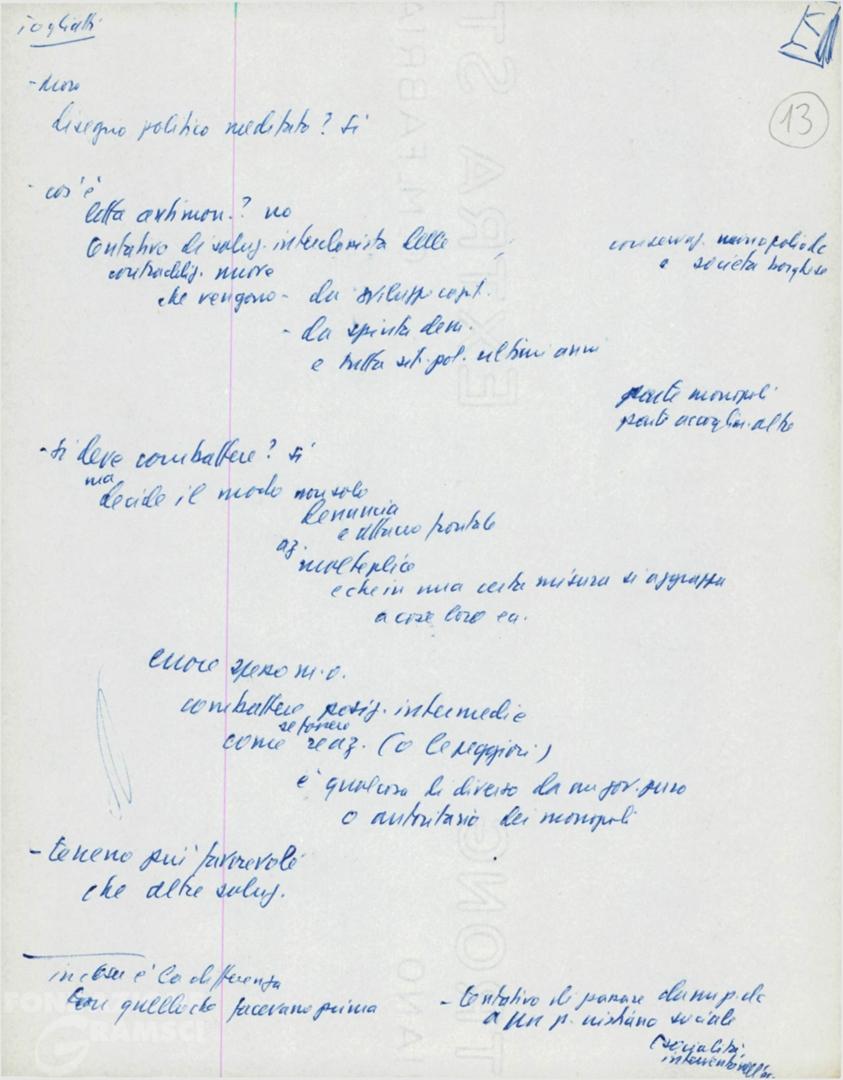 Togliatti
13
- Moro
disegno politico meditato? si
- cos'è
lotta antimon.? no
tentativo di soluz. interclassista delle
contraddiz. nuove
che vengono - da sviluppo capit.
- da spinta dem.
e tutta sit. pol. ultimi anni
conservaz. monopolio dc
e società borghese
parte monopoli
parte accoglim. altre
- si deve combattere? si
ma
decide il modo non solo
denuncia
e attacco frontale
az.
molteplice
e che in una certa misura si aggrappa
a cose loro
errore spesso m.o.
combattere posiz. intermedie
se fossero
come reaz. (o le peggiori)
è qualcosa di diverso da un gov. puro
o autoritario dei monopoli
- terreno più favorevole
che altre soluz.
in cosa è la differenza
con quello che facevano prima
- tentativo di passare da un p. dc
a un p. cristiano sociale
(socialità
FONDAZIONE
GRAMSCI
EXTRA ST